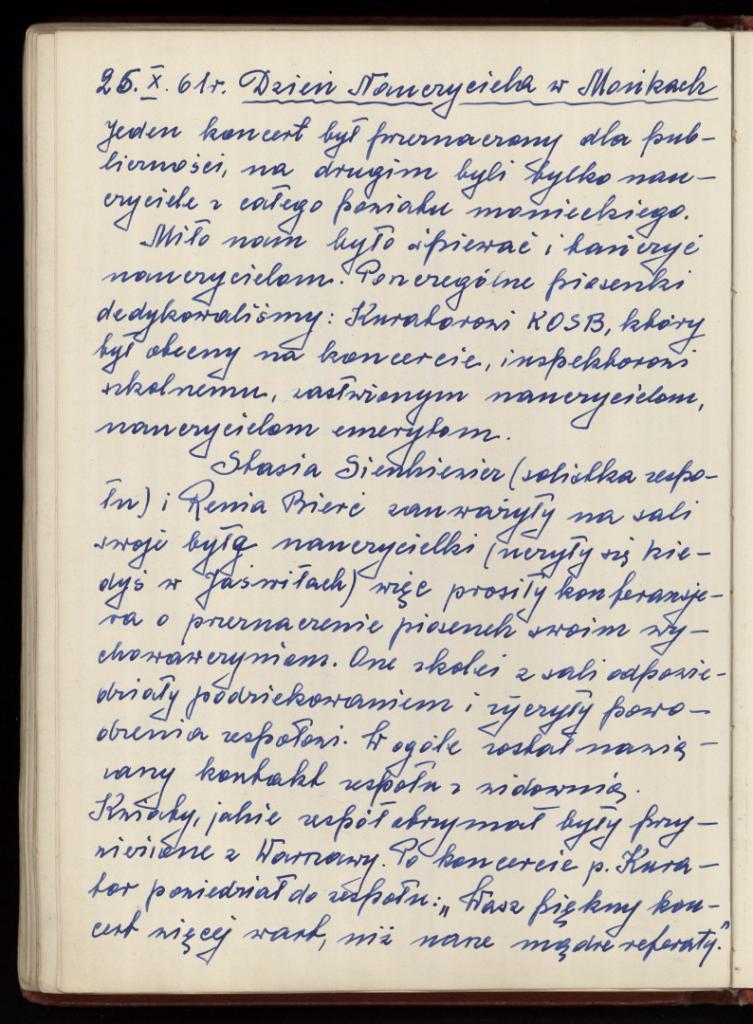 26. X. 61r. Dzień Nauczyciela w Mońkach
Jeden koncert był przeznaczony dla pub-
liczności, na drugim byli tylko nau-
czyciele z całego powiatu monieckiego.
Miło nam było śpiewać i tańczyć
nauczycielom. Poszczególne piosenki
dedykowaliśmy: Kuratorowi KOSB, który
był obecny na koncercie, inspektorowi
szkolnemu, zasłużonym nauczycielom,
nauczycielom emerytom.
Stasia Sienkiewicz (solistka zespo-
łu) i Renia Bierć zauważyły na sali
swoje byłą nauczycielki (uczyły się kie-
dyś w Jaświłach) więc prosiły konferansje-
ra o przeznaczenie piosenek swoim wy-
chowawczyniom. One skolei z sali odpowie-
działy podziękowaniem i życzyły powo-
dzenia zespołowi. W ogóle został nawią-
zany kontakt zespołu z widownią.
Kwiaty, jakie zespół otrzymał były przy-
wiezione z Warszawy. Po koncercie p. Kura-
tor powiedział do zespołu: „Wasz piękny kon-
cert więcej wart, niż nasze mądre referaty."